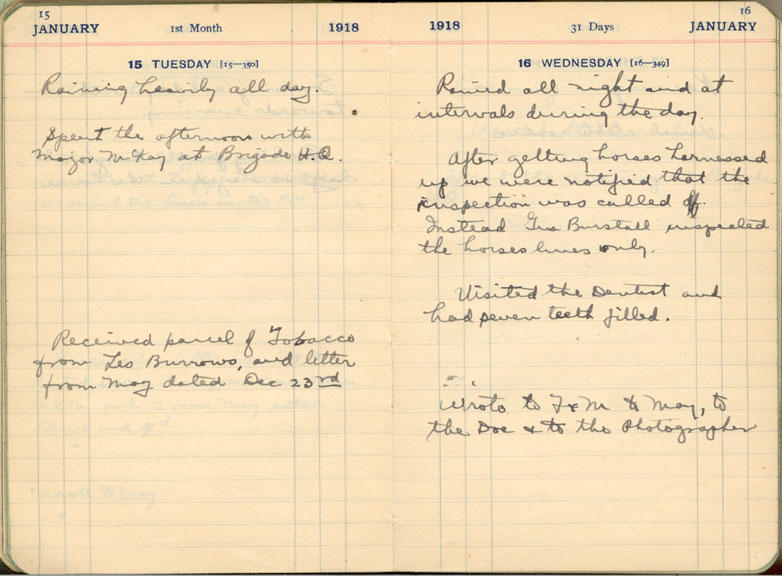 15
JANUARY 1st Month 1918
15 TUESDAY [15—350]
Raining heavily all day.
Spent the afternoon with
Major McKay at Brigade H.Q.
Received parcel of Tobacco
from Les Burrows, and letter
from May dated Dec 23rd
wrote to May
16
1918 31 Days JANUARY
16 WEDNESDAY [16—349]
Rained all night and at
intervals during the day.
After getting horses harnessed
up we were notified that the
inspection was called off.
Instead Gen Burstall inspected
the horses lines only.
Visited the Dentist and
had seven teeth filled.
Wrote to F & M & May, to
the Doc & to the Photographer